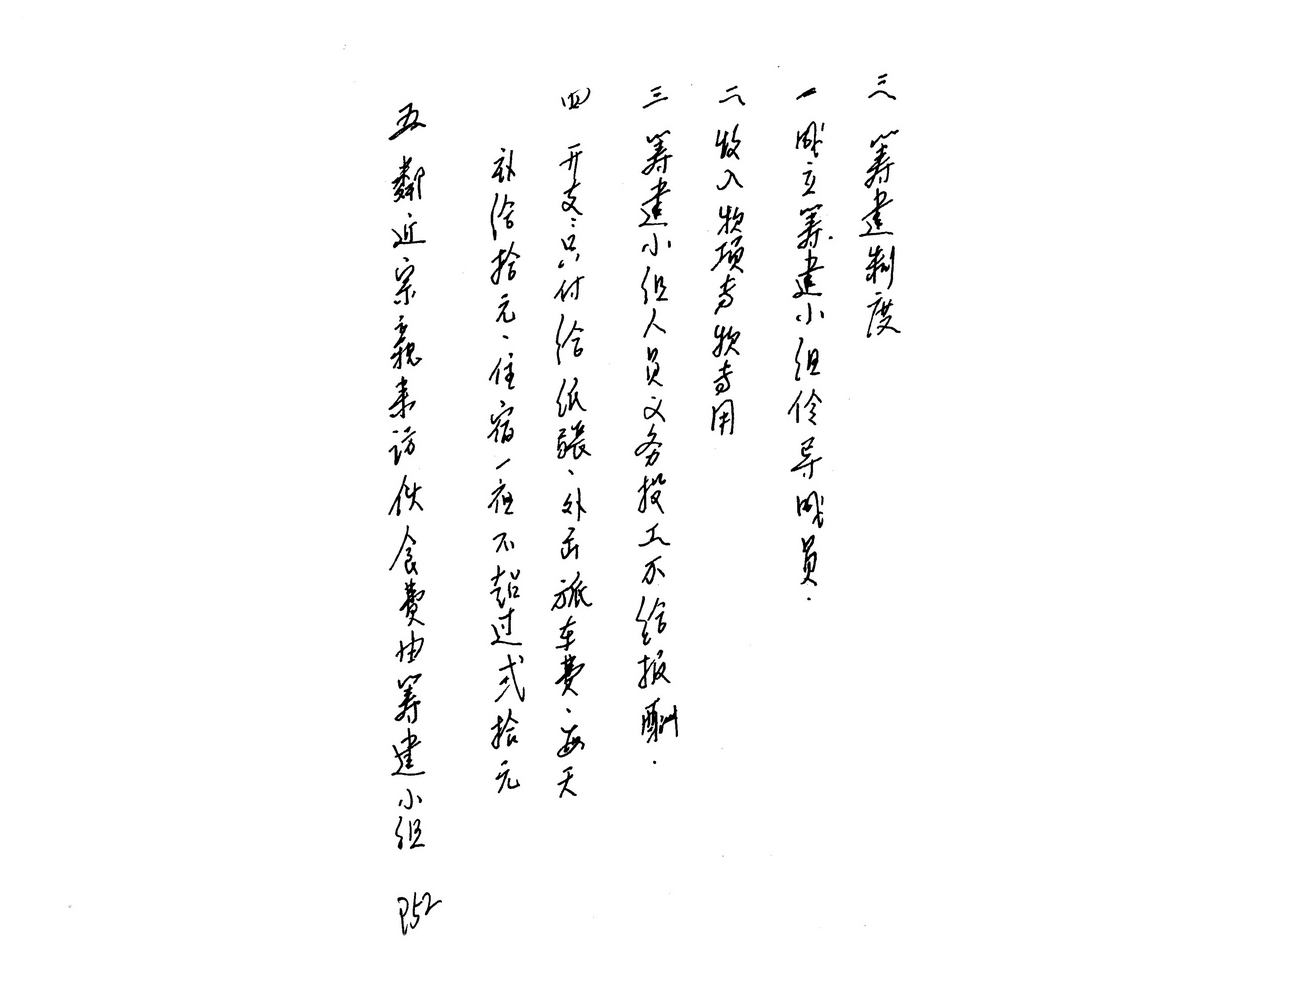 三、筹建制度
一 成立筹建小组伶导成员.
二 收入款项专款专用
三 筹建小组人员义务投工不给报酬.
四 开支:只付给纸张、外出旅车费、每天
补给拾元、住宿一夜不超过弍拾元
五 鄰近宗親来访伙食費由筹建小组
P52